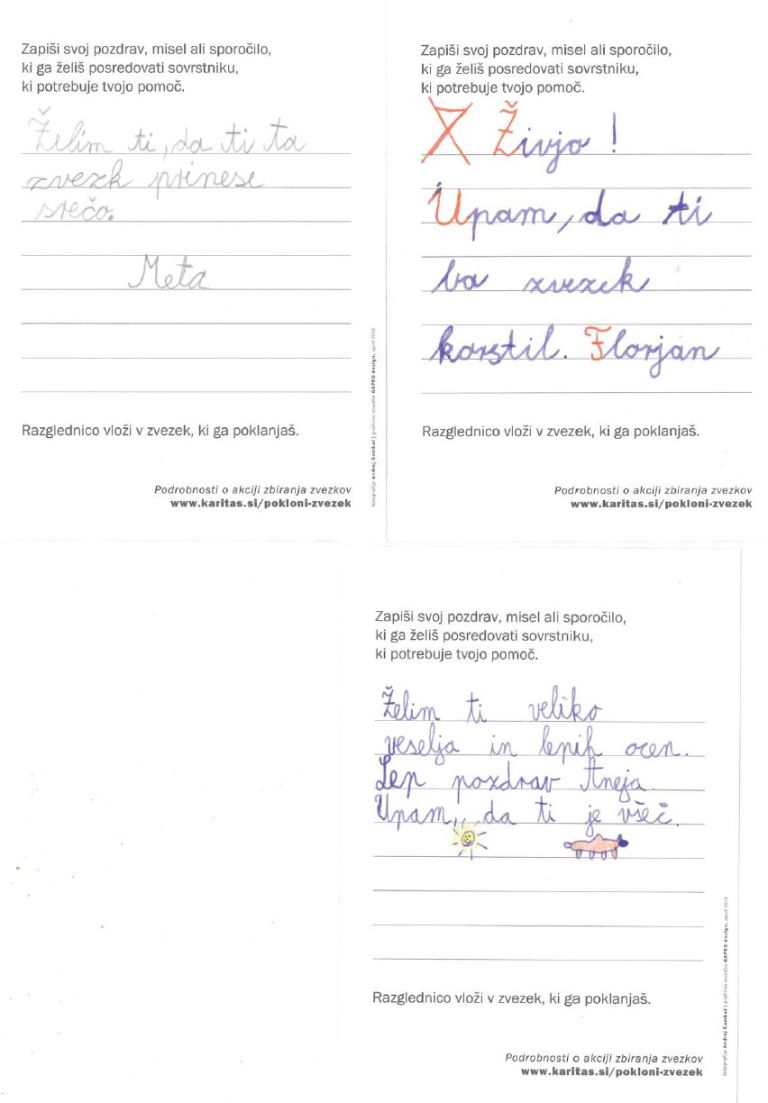 Zapiši svoj pozdrav, misel ali sporočilo,
ki ga želiš posredovati sovrstniku,
ki potrebuje tvojo pomoč.
Želim ti, da ti ta
zvezk prinese
srečo.
Meta
Razglednico vloži v zvezek, ki ga poklanjaš.
Podrobnosti o akciji zbiranja zvezkov
www.karitas.si/pokloni-zvezek
Zapiši svoj pozdrav, misel ali sporočilo,
ki ga želiš posredovati sovrstniku,
ki potrebuje tvojo pomoč.
Živjo!
Upam, da ti
ba zvezek
korstil. Florjan
Razglednico vloži v zvezek, ki ga poklanjaš.
Podrobnosti o akciji zbiranja zvezkov
www.karitas.si/pokloni-zvezek
Zapiši svoj pozdrav, misel ali sporočilo,
ki ga želiš posredovati sovrstniku,
ki potrebuje tvojo pomoč.
Želim ti veliko
veselja in lepih ocen.
Lep pozdrav Aneja.
Upam, da ti je všeč.
Razglednico vloži v zvezek, ki ga poklanjaš.
Podrobnosti o akciji zbiranja zvezkov
www.karitas.si/pokloni-zvezek